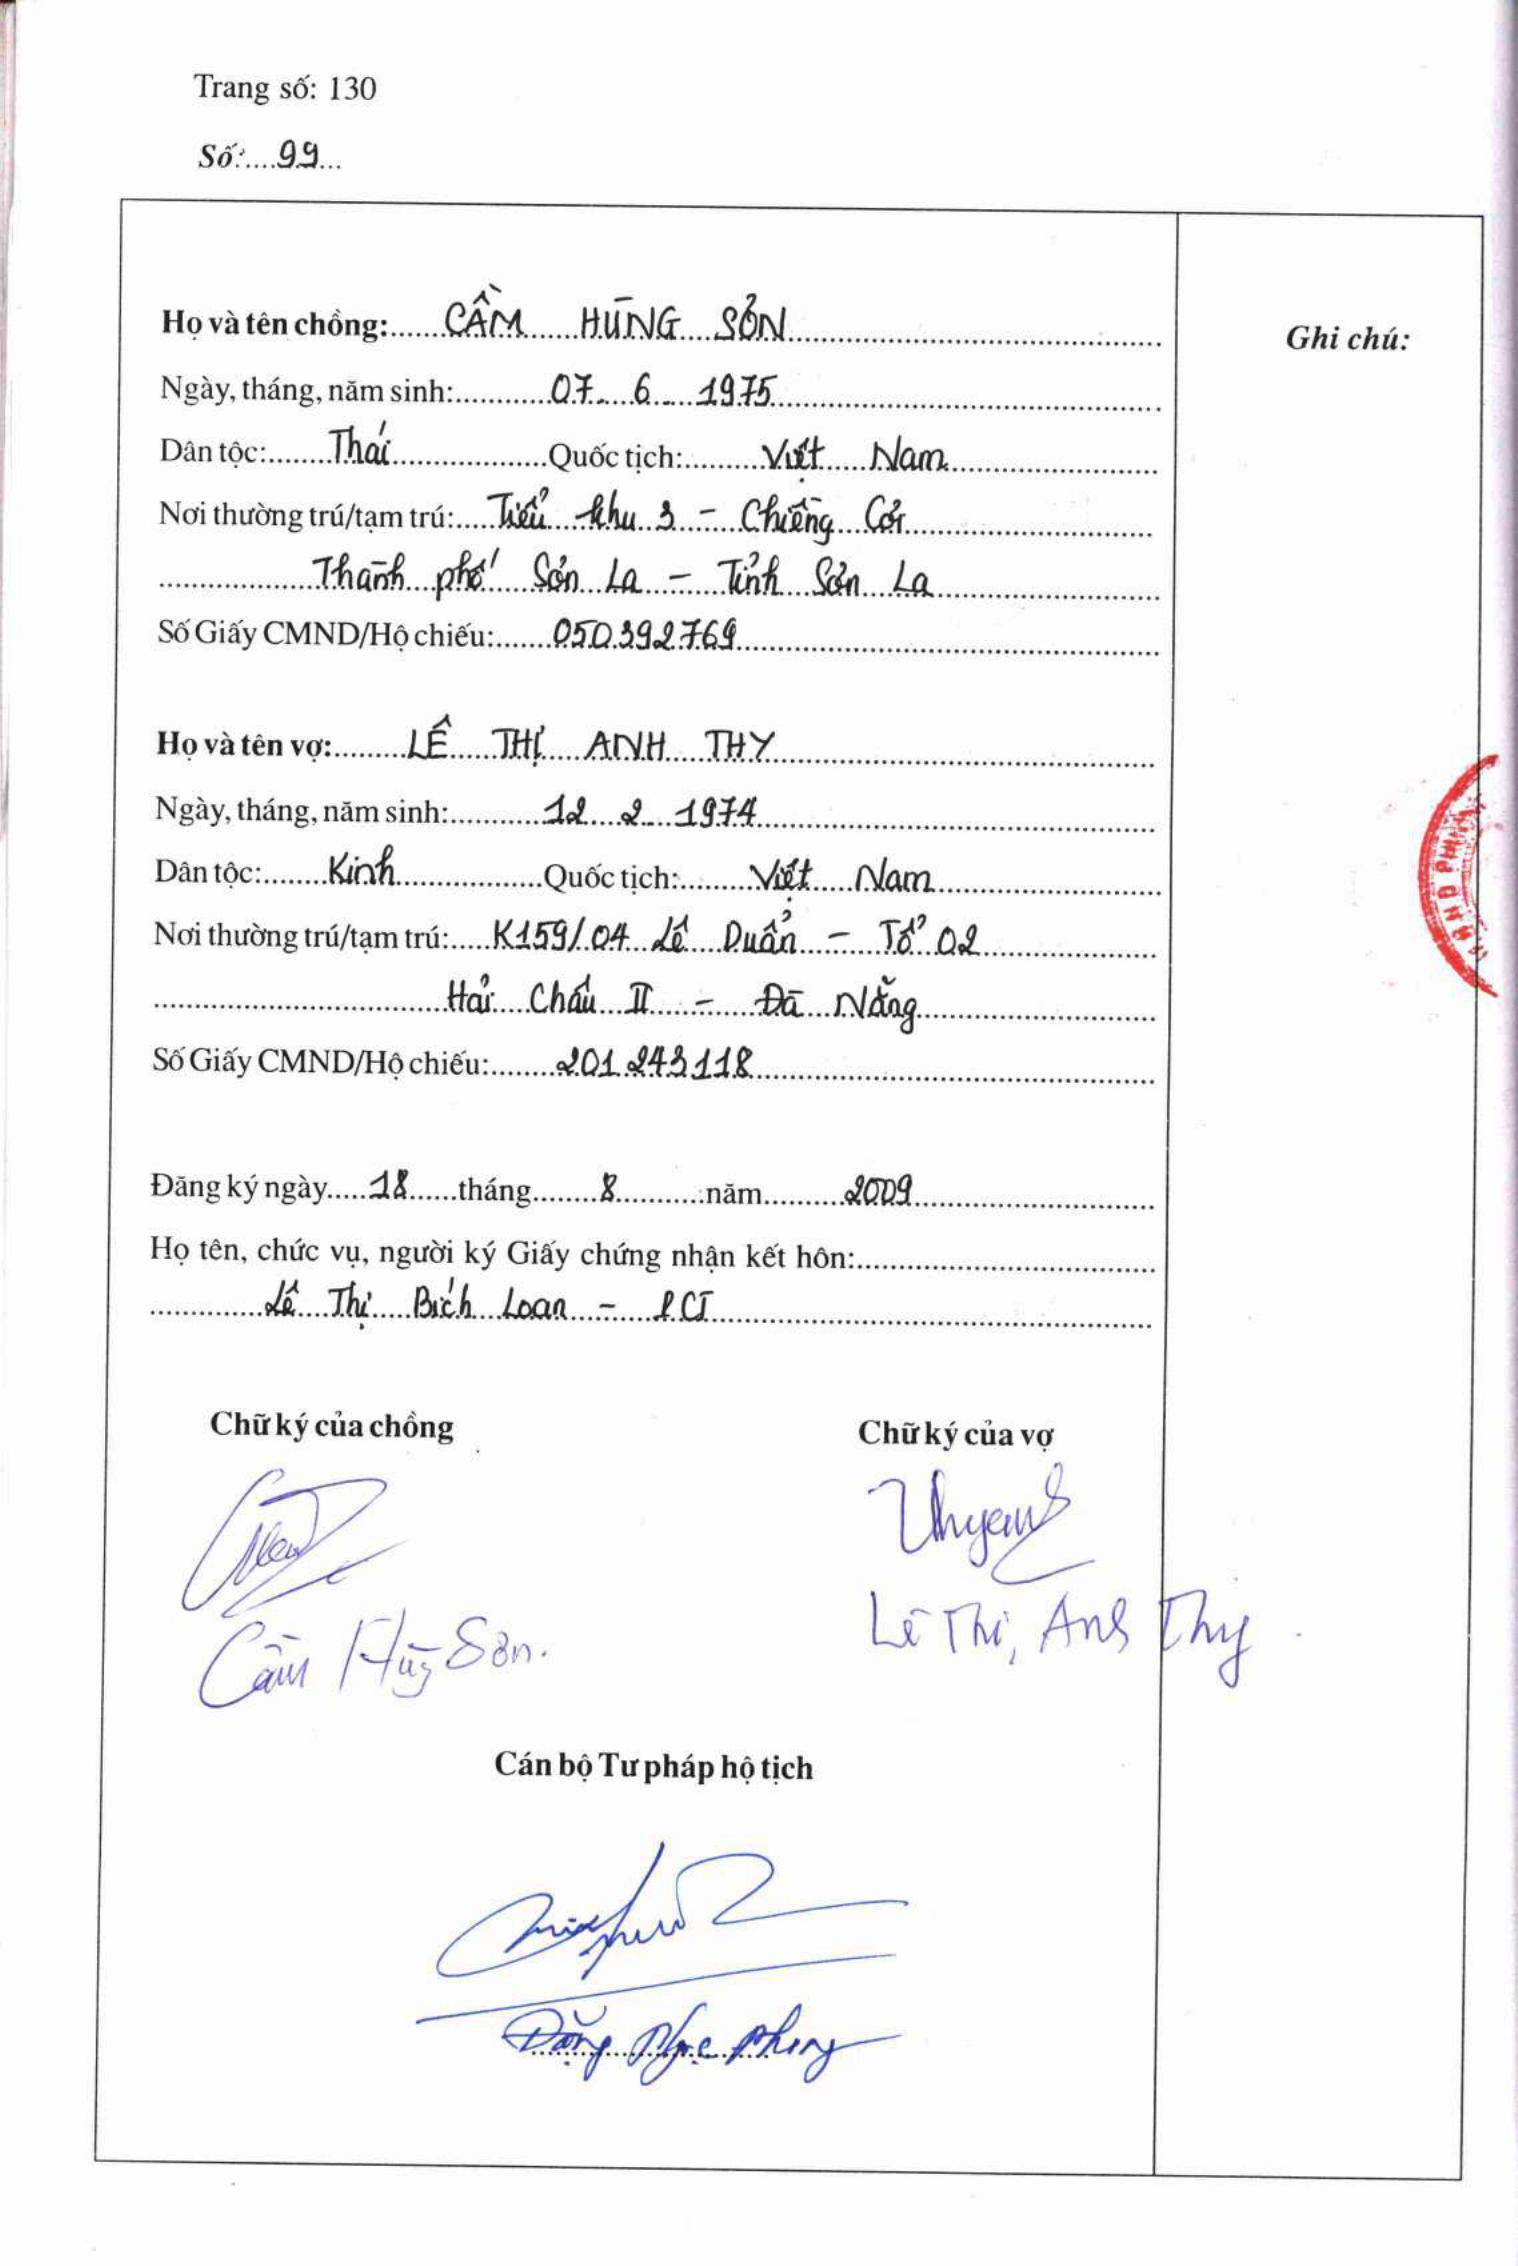 Trang số: 130
Số: 99
Họ và tên chồng: CẦM HÙNG SƠN
Ghi chú:
Ngày, tháng, năm sinh: 07 - 6 - 1975
Dân tộc: Thái Quốc tịch: Việt Nam
Nơi thường trú/tạm trú: Tiểu khu 3 - Chiềng Cơi
Thành phố Sơn La - Tỉnh Sơn La
Số Giấy CMND/Hộ chiếu: 050392769
Họ và tên vợ: LÊ THỊ ANH THY
Ngày, tháng, năm sinh: 12 - 2 - 1974
Dân tộc: Kinh Quốc tịch: Việt Nam
Nơi thường trú/tạm trú: K159/04 Lê Duẩn - Tổ 02
Hải Châu II - Đà Nẵng
Số Giấy CMND/Hộ chiếu: 201243118
Đăng ký ngày 18 tháng 8 năm 2009
Họ tên, chức vụ, người ký Giấy chứng nhận kết hôn:
Lê Thị Bích Loan - PCT
Chữ ký của chồng Chữ ký của vợ
Cầm Hùng Sơn. Lê Thị Anh Thy
Cán bộ Tư pháp hộ tịch
Đặng Ngọc Phong